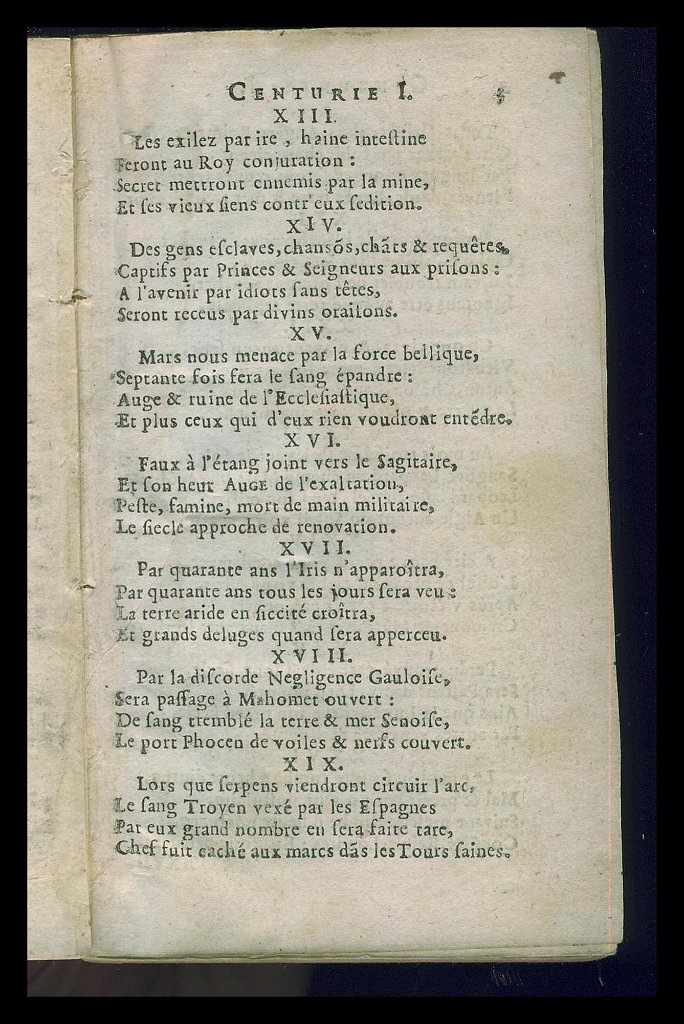 CENTURIE I. 5
XIII.
Les exilez par ire, haine inteſtine
Feront au Roy conjuration :
Secret mettront ennemis par la mine,
Et ſes vieux ſiens contr'eux ſedition.
XIV.
Des gens eſclaves, chansõs, chãts & requêtes,
Captifs par Princes & Seigneurs aux priſons :
A l'avenir par idiots ſans têtes,
Seront receus par divins oraiſons.
XV.
Mars nous menace par la force bellique,
Septante fois fera le ſang épandre :
Auge & ruine de l'Eccleſiaſtique,
Et plus ceux qui d'eux rien voudront entẽdre.
XVI.
Faux à l'étang joint vers le Sagitaire,
Et ſon heur AUGE de l'exaltation,
Peſte, famine, mort de main militaire,
Le ſiecle approche de renovation.
XVII.
Par quarante ans l'Iris n'apparoîtra,
Par quarante ans tous les jours ſera veu :
La terre aride en ſiccité croîtra,
Et grands deluges quand ſera apperceu.
XVIII.
Par la diſcorde Negligence Gauloiſe,
Sera paſſage à Mahomet ouvert :
De ſang tremblé la terre & mer Senoiſe,
Le port Phocen de voiles & nerfs couvert.
XIX.
Lors que ſerpens viendront circuir l'arc,
Le ſang Troyen vexé par les Eſpagnes
Par eux grand nombre en ſera faite tare,
Chef fuit caché aux marcs dãs les Tours ſaines.